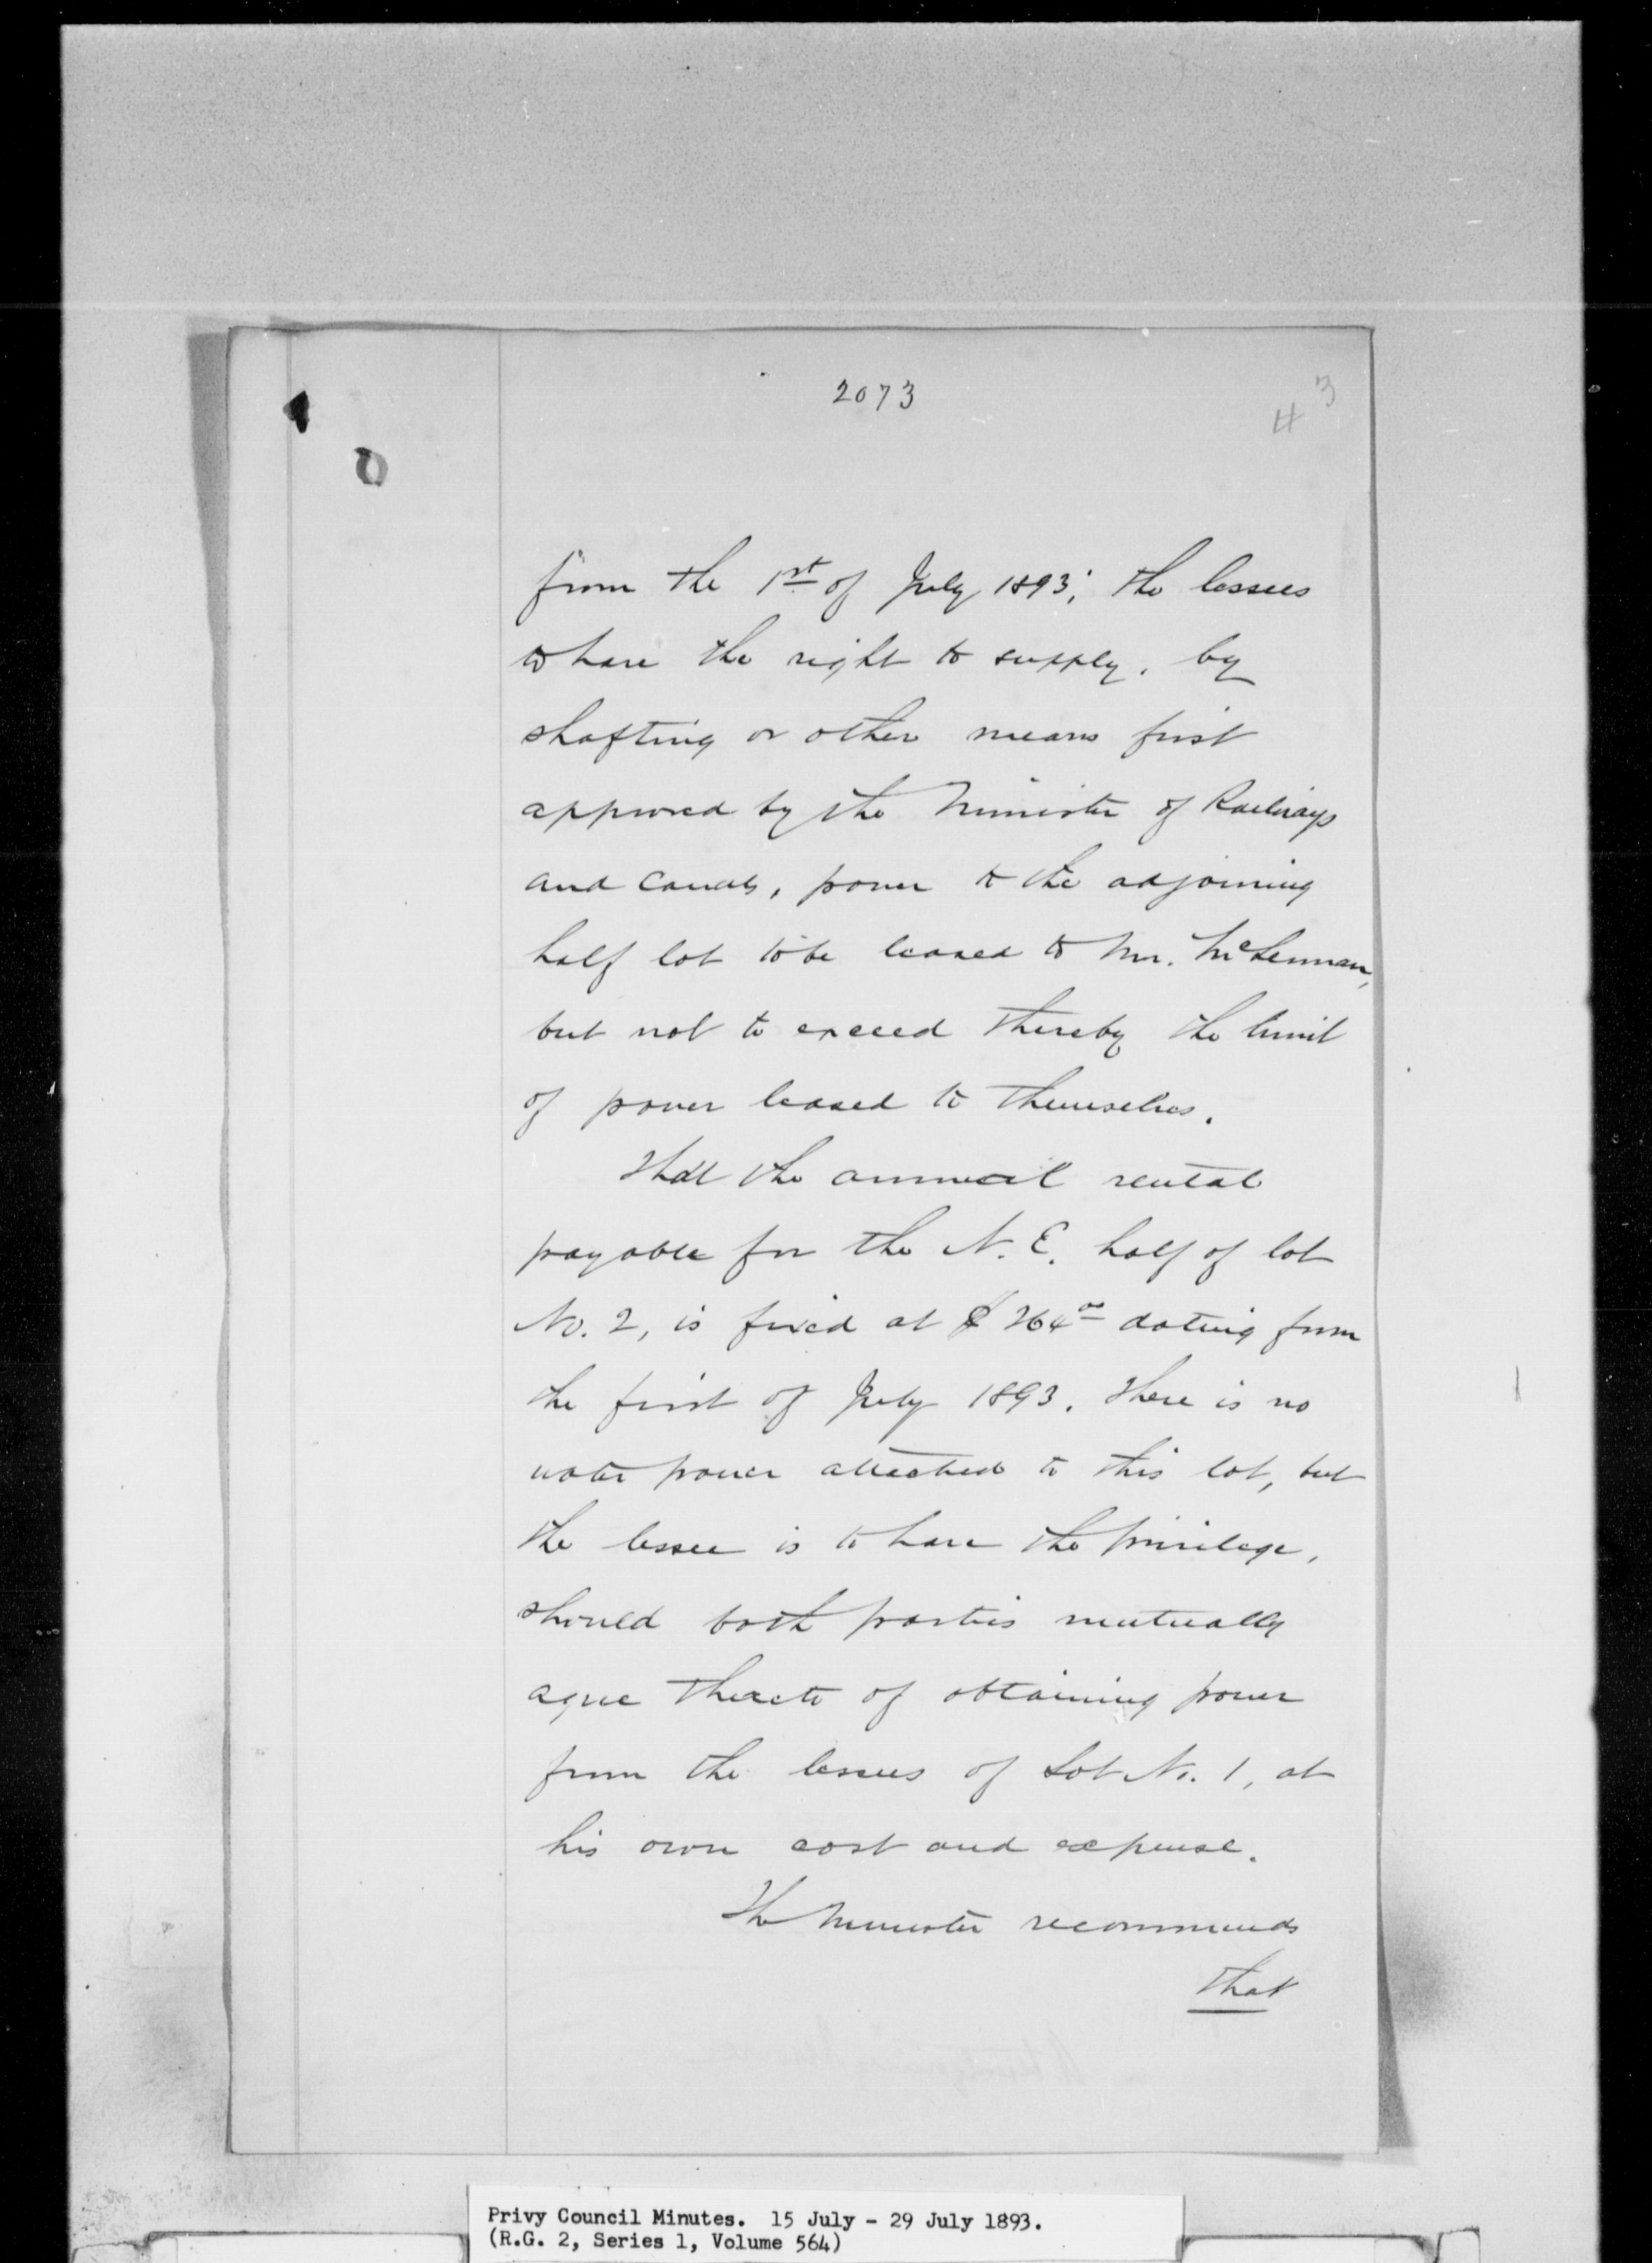 2073
3
4
from the 1st of July 1893; the lessees
to have the right to supply, by
shafting or other means first
approved by the Minister of Railways
and Canals, power to the adjoining
half lot to be leased to Mr. McLennan,
but not to exceed thereby the limit
of power leased to themselves.
That the annual rental
payable for the N. E. half of lot
No. 2, is fixed at $264.00 dating from
the first of July 1893. There is no
water power attached to this lot, but
the lessee is to have the privilege,
should both parties mutually
agree thereto of obtaining power
from the lessees of Lot No. 1, at
his own cost and expense.
The Minister recommends
that
Privy Council Minutes. 15 July - 29 July 1893.
(R.G. 2, Series 1, Volume 564)